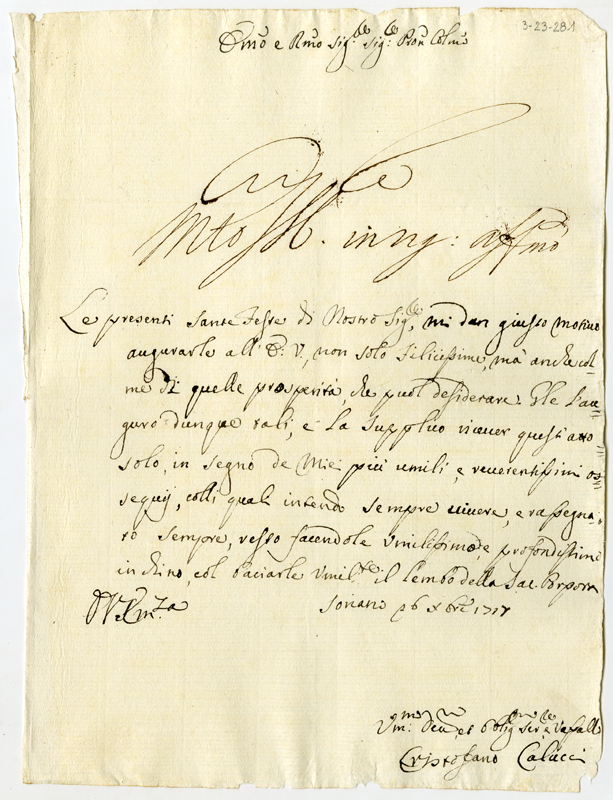 3-23-281
Emo e Rmo Sig.re Sig.r Pron Colmo
Le presenti Sante Feste di Nostro Sig.re, mi dan giusto motivo
augurarle all' E: V, non solo felicissime, mà anche col-
me di quelle prosperità, che puol desiderare. Gle l'au
guro dunque tali, e la supplico riceuer quest'atto
solo, in segno de miei più umili, e reuerentissimi os
sequij, colli quali intendo sempre uiuere, e rassegna,
rò sempre, resto facendole umilissimo, e profondissimo
inchino, col baciarle Umil.te il lembo della Sac. Porpora
Soriano 26 Xbre 1717
Vm: Deu. et Oblig Ser. e Vassallo
Cristofano Calucci